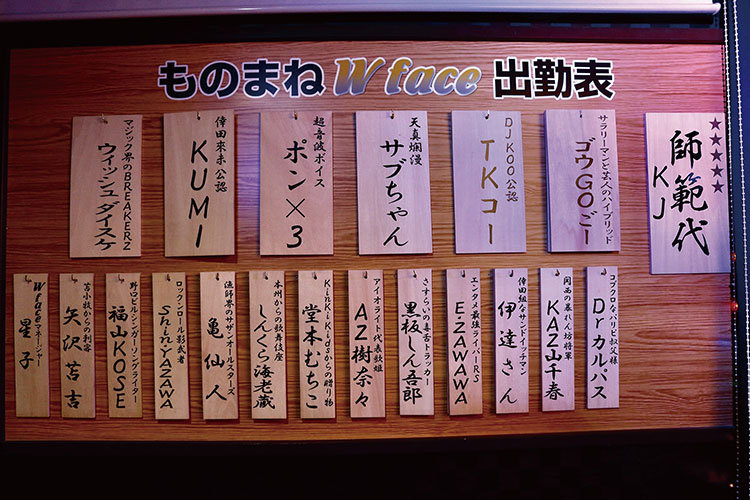 ものまねW face 出勤表
★★★★★
師範代
KJ
サラリーマンと芸人のハイブリッド
ゴウGOごー
DJ KOO公認
TKコー
天真爛漫
サブちゃん
超音波ボイス
ポン×3
倖田來未公認
KUMI
マジック界のBREAKERZ
ウィッシュダイスケ
コブクロなパリピ叔父様
Drカルパス
関西の暴れん坊将軍
KAZ山千春
倖田組なサンドイッチマン
伊達さん
エンタメ最強ライバーRS
E-ZAWAWA
さすらいの毒舌トラッカー
黒板しん吾郎
アイオライト代表歌姫
AZ樹奈々
KinKi Kidsからの贈り物
堂本むちこ
本州からの歌舞伎座
しんくら海老蔵
漁師界のサザンオールスターズ
亀仙人
ロックンロール影武者
Shin-YAZAWA
野口ビルシンガーソングライター
福山KOSE
苫小牧からの刺客
矢沢苫吉
W faceマネージャー
星子